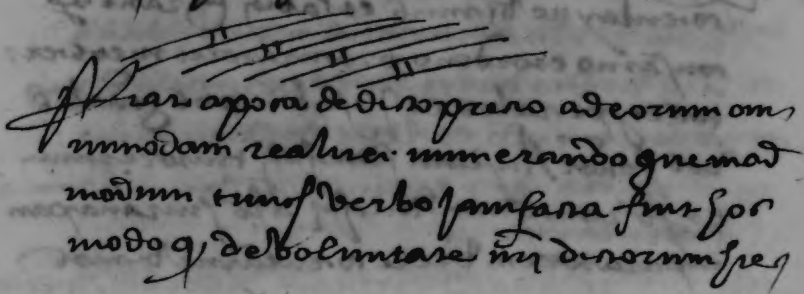 Fiat apoca de dicto precio ad eorum om
nimodam realiter numerando quemad
modum tunc verbo jam facta fuit hoc
modo q de voluntate nri dictorum